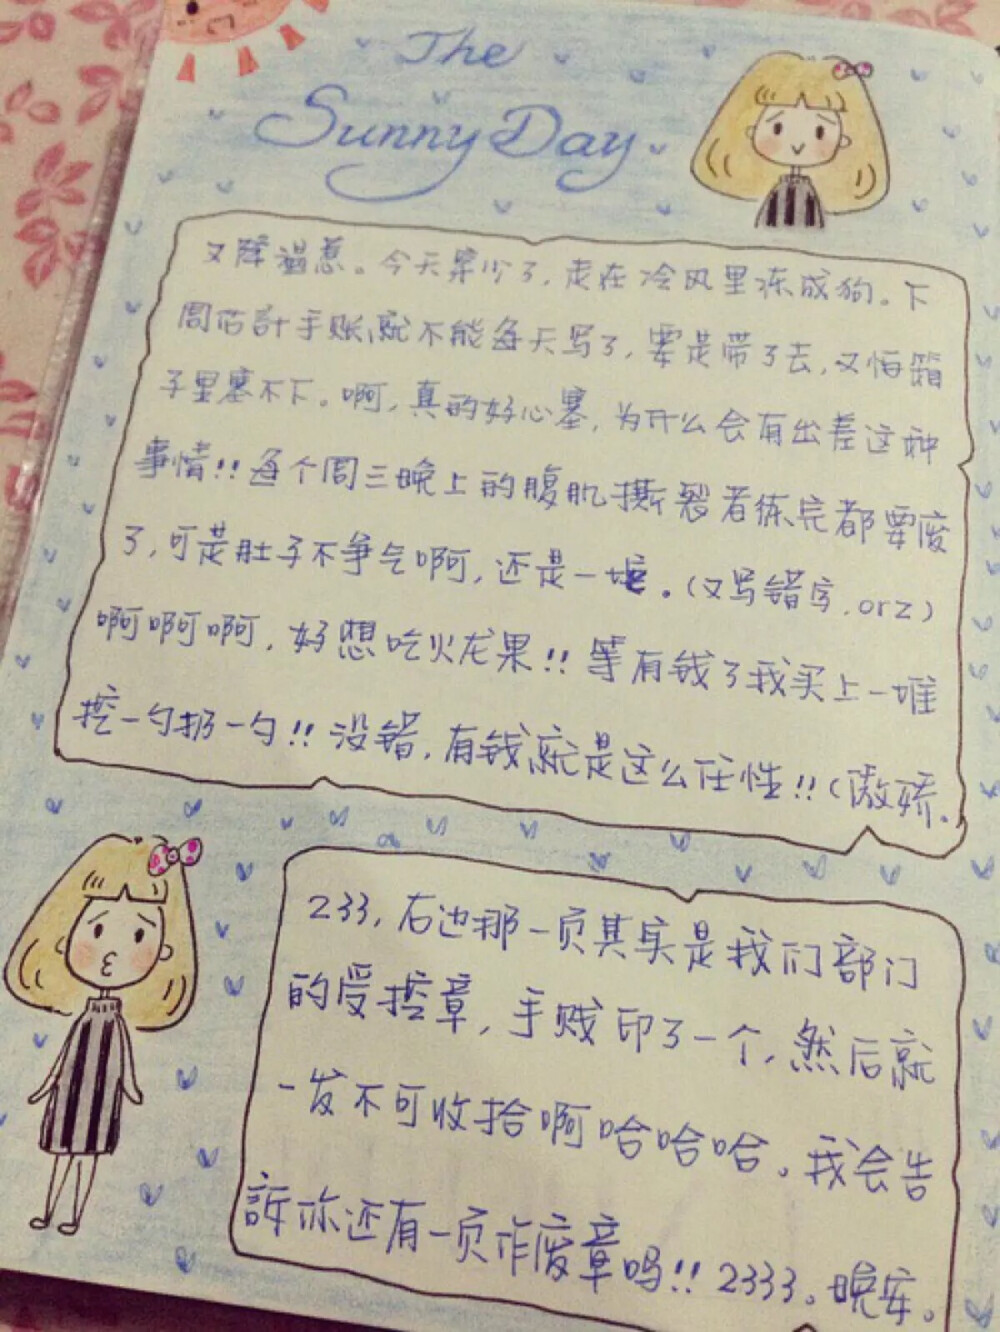 The
Sunny Day
又降温惹。今天穿少了,走在冷风里冻成狗。下
周估計手账就不能每天写了,要是带了去,又怕箱
子里塞不下。啊,真的好心塞,为什么会有出差这种
事情!!每个周三晚上的腹肌撕裂者练完都要废
了,可是肚子不争气啊,还是一堆。(又写错字,orz)
啊啊啊啊,好想吃火龙果!!等有钱了我买上一堆
挖一勺扔一勺!!没错,有钱就是这么任性!!(傲娇.
233,右边那一页其实是我们部门
的受控章,手贱印了一个,然后就
一发不可收拾啊哈哈哈。我会告
訴你还有一页作废章吗!!2333。晚安。